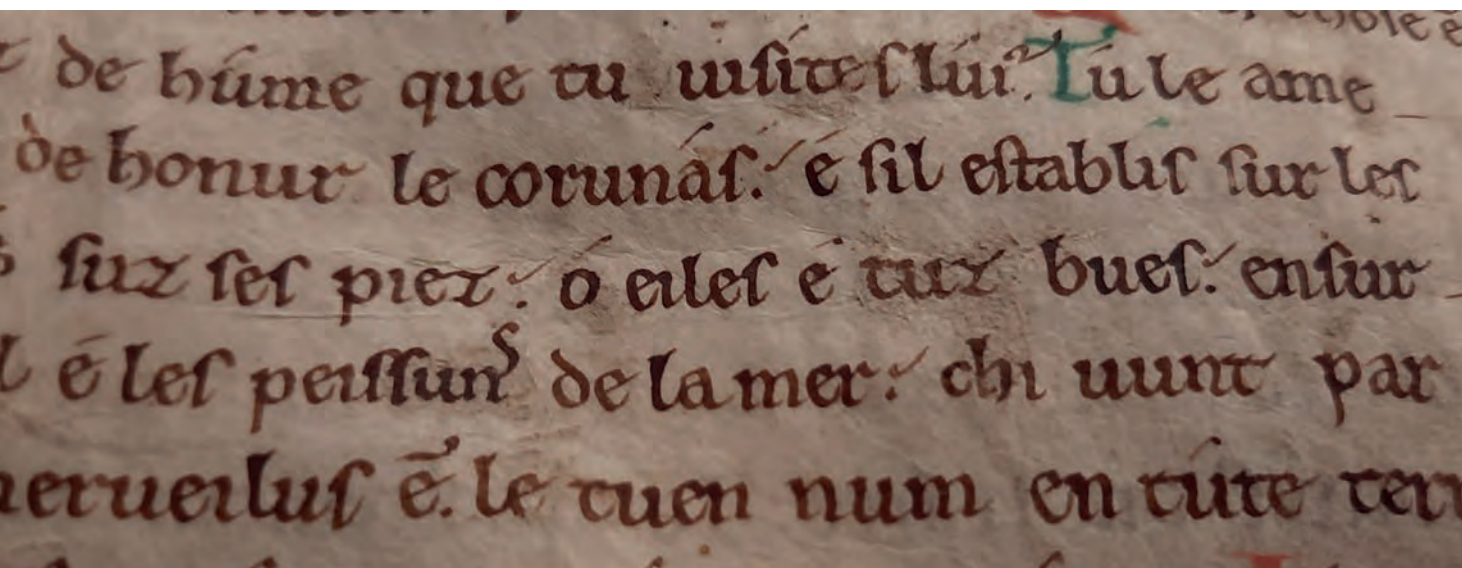 de hume que tu uisites lui. Tu le ame
de honur le corunas. e sil establis sur les
sur ses piez. o eiles e tuz bues. ensur
e les peissuns de la mer. chi uunt par
merueilus ē. le tuen num en tute terr